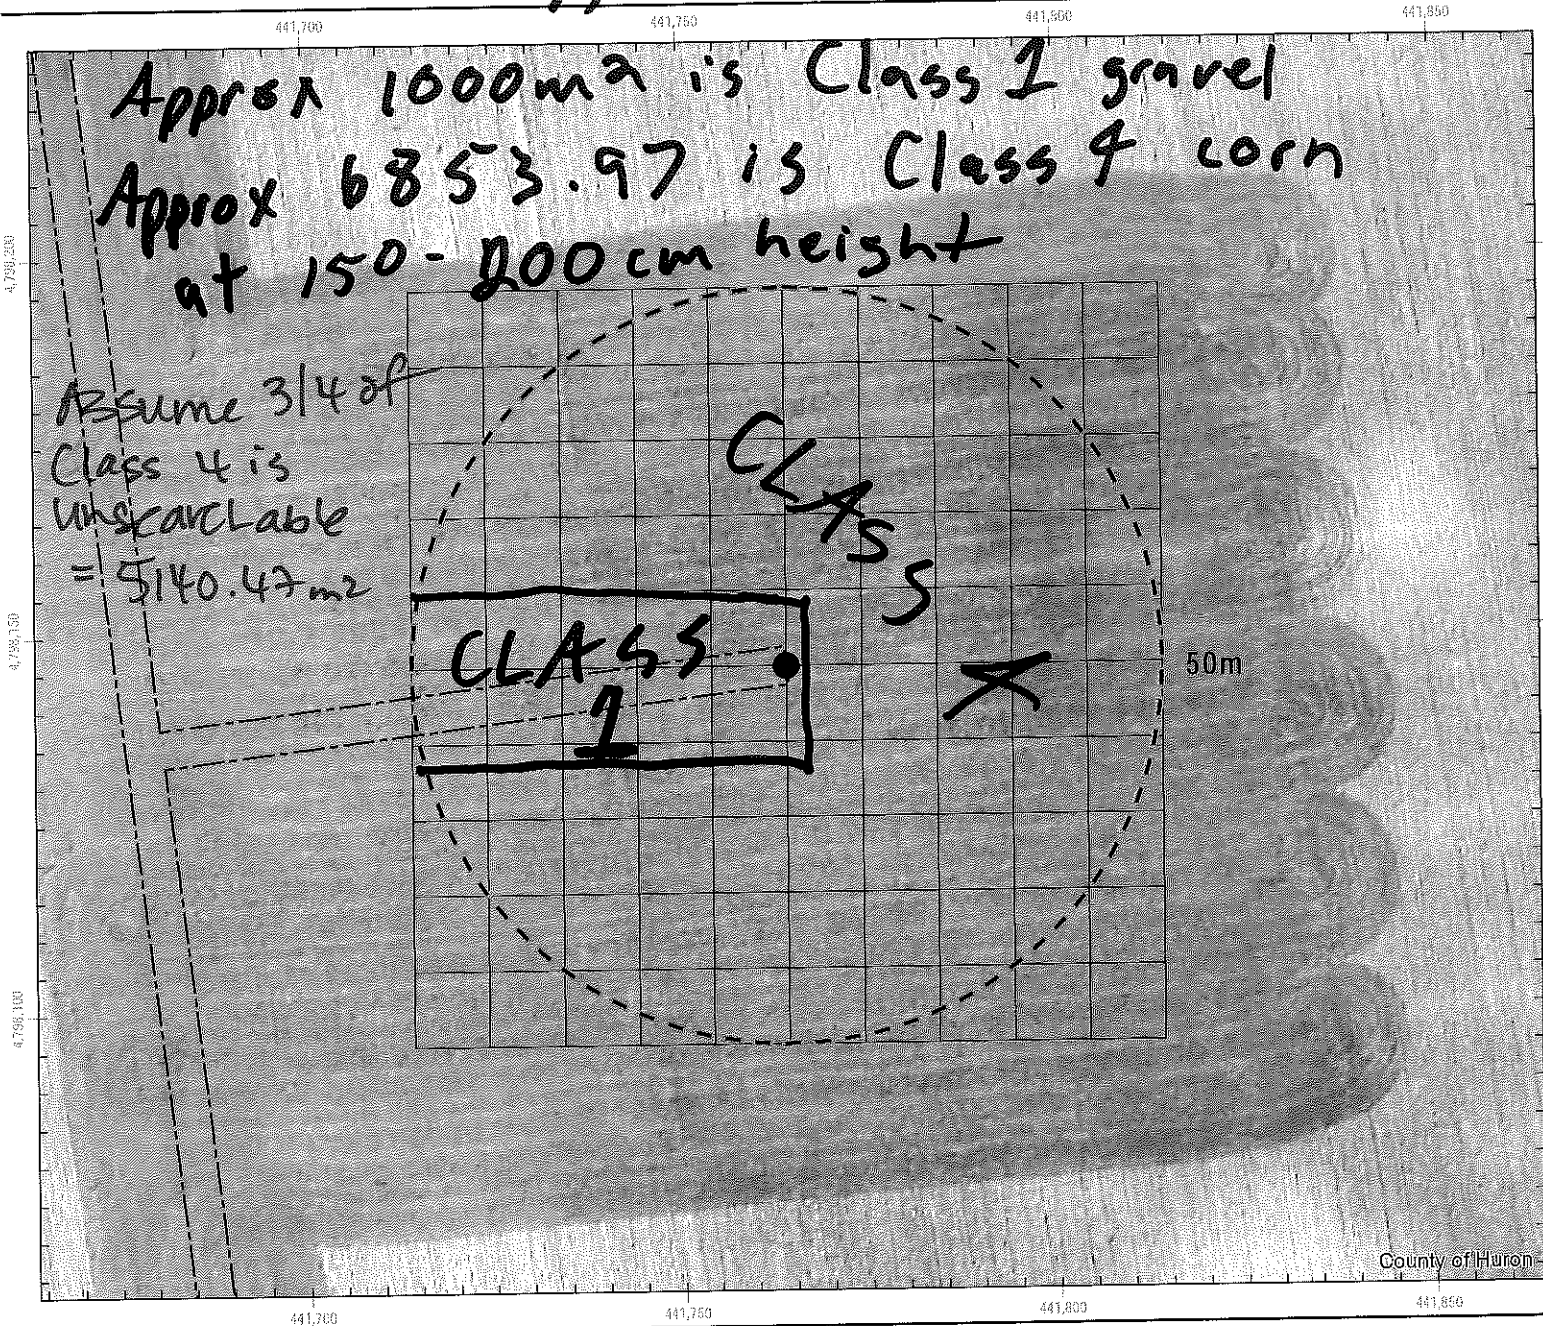 441,700 441,750 441,800 441,850
Approx 1000m2 is Class 1 gravel
Approx 6853.97 is Class 4 corn
at 150-200cm height
4,798,200
Assume 3/4 of
Class 4 is
unsearchable
= 5140.47m2
CLASS
4
CLASS
1
50m
4,798,150
4,798,100
County of Huron
441,700 441,750 441,800 441,850